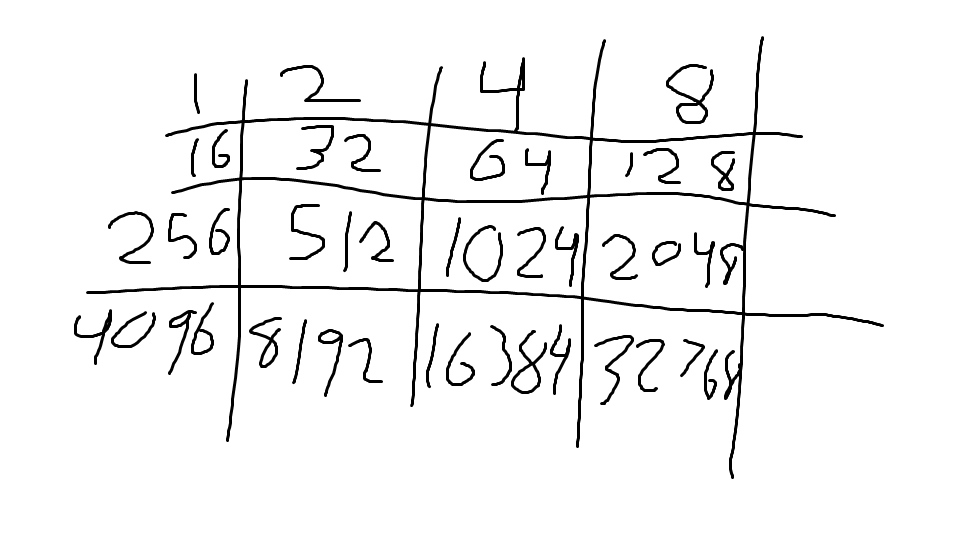 1 2 4 8
16 32 64 128
256 512 1024 2048
4096 8192 16384 32768